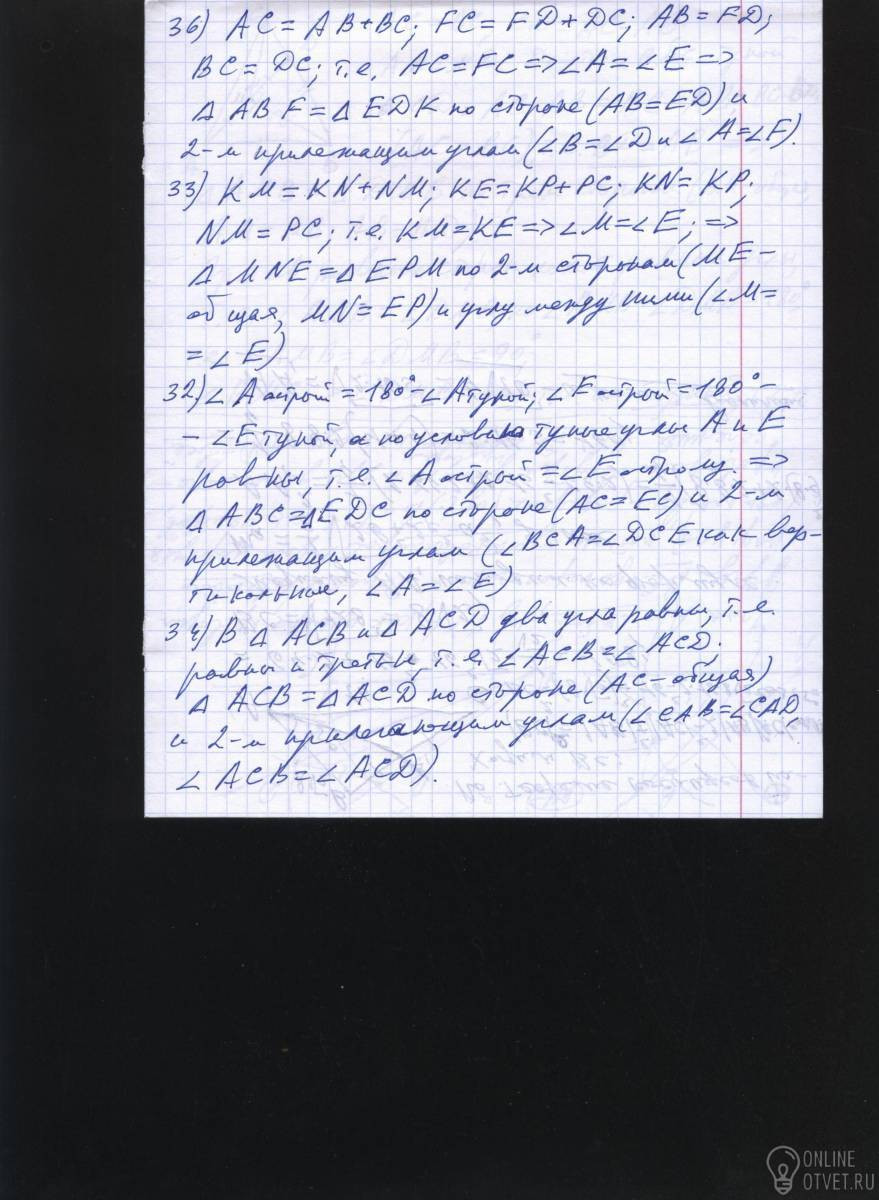 36) AC = AB+BC; FC = FD+DC; AB = FD;
BC = DC; т.е. AC = FC => ∠A = ∠E =>
△ ABF = △ EDK по стороне (AB = ED) и
2-м прилежащим углам (∠B = ∠D и ∠A = ∠F).
33) KM = KN + NM; KE = KP + PC; KN = KP;
NM = PC; т.е. KM = KE => ∠M = ∠E; =>
△ MNE = △ EPM по 2-м сторонам (ME –
общая, MN = EP) и углу между ними (∠M =
= ∠E)
32) ∠A острый = 180° - ∠A тупой; ∠E острый = 180° –
– ∠E тупой, а по условию тупые углы A и E
равны, т.е. ∠A острый = ∠E острому. =>
△ ABC = △ EDC по стороне (AC = EC) и 2-м
прилежащим углам (∠BCA = ∠DCE как вер-
тикольные, ∠A = ∠E)
34) В △ ACB и △ ACD два угла равны, т.е.
равны и третьи, т.е. ∠ACB = ∠ACD;
△ ACB = △ ACD по стороне (AC – общая)
и 2-м прилегающим углам (∠CAB = ∠CAD,
∠ACB = ∠ACD).
ONLINE
OTVET.RU